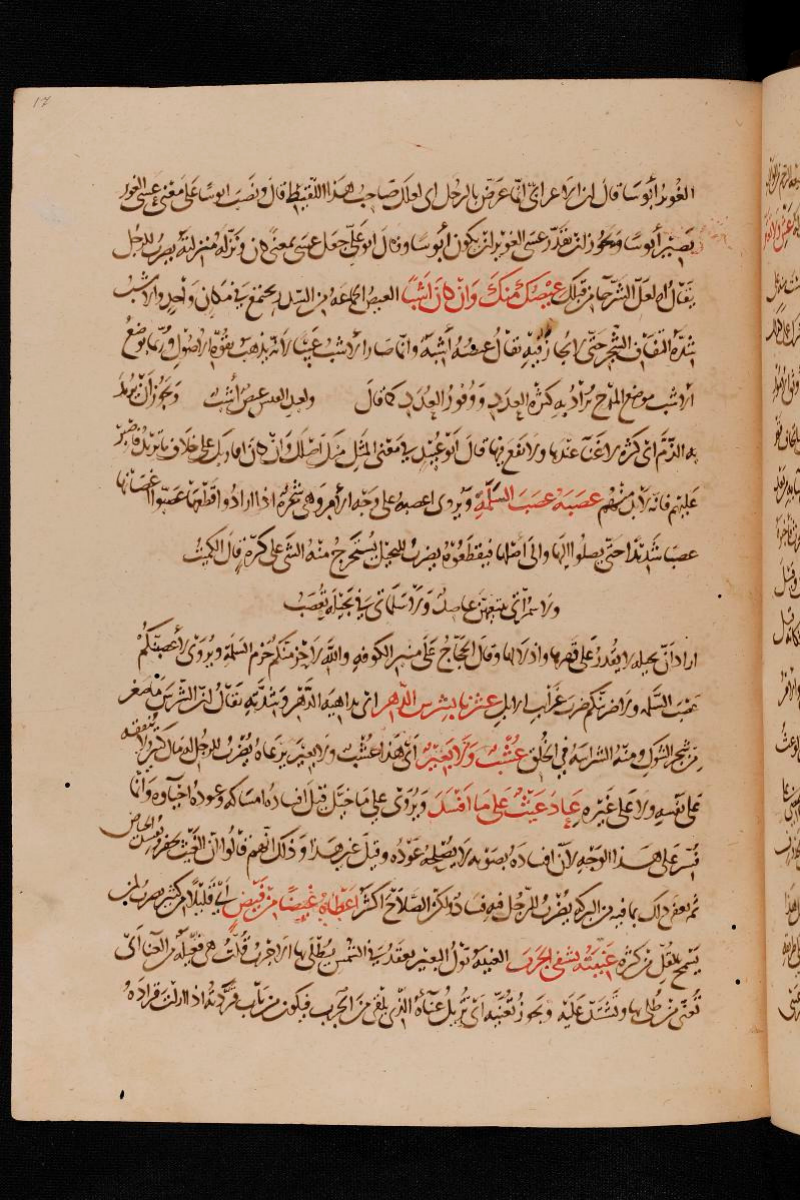 17
الغُوير أبوسا قال ابن الاعرابي انما عرض بالرجل اي لعلك صاحب هذا اللقيط قال ونصب ابوسا على معنى عسى الغوير
يصير أبوسا ويجوز ان يقدر عسى الغوير ان يكون أبوسا وقال ابو علي جعل عسى بمعنى كان ونزله منزلته يضرب للرجل
يقال له لعل الشر جاء من قبلك عيصك منك وان كان اشبا العيص الجماعة من السدر يجتمع في مكان واحد والاشب
شدة التفاف الشجر حتى لا مجاز فيه يقال غيضة أشبة وانما صار الاشب عيبا لانه يذهب بقوة الاصول وربما يوضع
الاشب موضع المدح يراد به كثرة العدد ووفور العدد كما قال ولعبد القيس عيص أشب ويجوز أن يريد
به الذم اي كثرة لا غناء عندها ولا نفع فيها قال ابو عبيد في معنى المثل منك اصلك وان كان اقاربك على خلاف ما تريد فاصبر
عليهم فانه لابد منهم عصبه عصب السلمة ويروى اعصبه على وجه الامر وهي شجرة اذا ارادوا قطعها عصبوا اغصانها
عصبا شديدا حتى يصلوا اليها والى اصلها فيقطعوه يضرب للبخيل يستخرج منه الشي على كره قال الكميت
ولا سمراتي يبتغيهن عاضد ولا سلماتي في بجيلة تعصب
اراد أن بجيلة لا يقدر على قهرها واذلالها وقال الحجاج على منبر الكوفه والله لاحزمنكم حزم السلمة ويروى لأعصبنكم
عصب السلمه ولاضربنكم ضرب غرائب الابل عثر باشرس الدهر اي بداهية الدهر وشدته يقال ان الشرس ما صغر
من شجر الشوك ومنه الشراسه في الخلق عشب ولا بعير أي هذا عشب ولا بعير يرعاه يضرب للرجل له مال كثير ولا ينفقه
على نفسه ولا على غيره عاد غيث على ما افسد ويروى على ما خبل قيل افساده امساكه وعوده احياوه وانما
فسر على هذا الوجه لان افساده بصوبه لا يصلحه عوده وقيل غير هذا وذلك انهم قالوا ان الغيث يحفر ويفسد الحياض
ثم يعفي ذلك بما فيه من البركة يضرب للرجل فيه فساد ولكن الصلاح اكثر اعطاه غيضا من فيض أي قليلا من كثير يضرب لمن
يسمح بالقل من كثره عنيته تشفي الجرب العنية بول البعير يعقد في الشمس يطلى بها الاجرب قلت هي فعيلة من العناء أي
تعنى من طلي بها وتشتد عليه ويجوز تعنيه اي تزيل عناءه الذي يلقى من الجرب فيكون من باب قردته اذا ازلت قراده